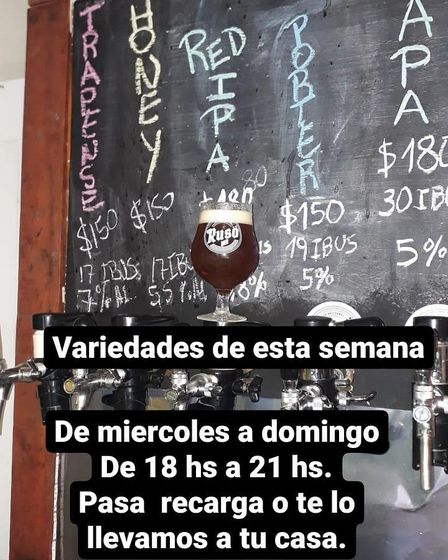 TRAPENSE
HONEY
RED
IPA
PORTER
APA
$150
17 IBUS
7% AL
$150
17 IB
5,5% AL
80
8%
$150
19 IBUS
5%
$180
30 IBU
5%
Ruso
Variedades de esta semana
De miercoles a domingo
De 18 hs a 21 hs.
Pasa recarga o te lo
llevamos a tu casa.